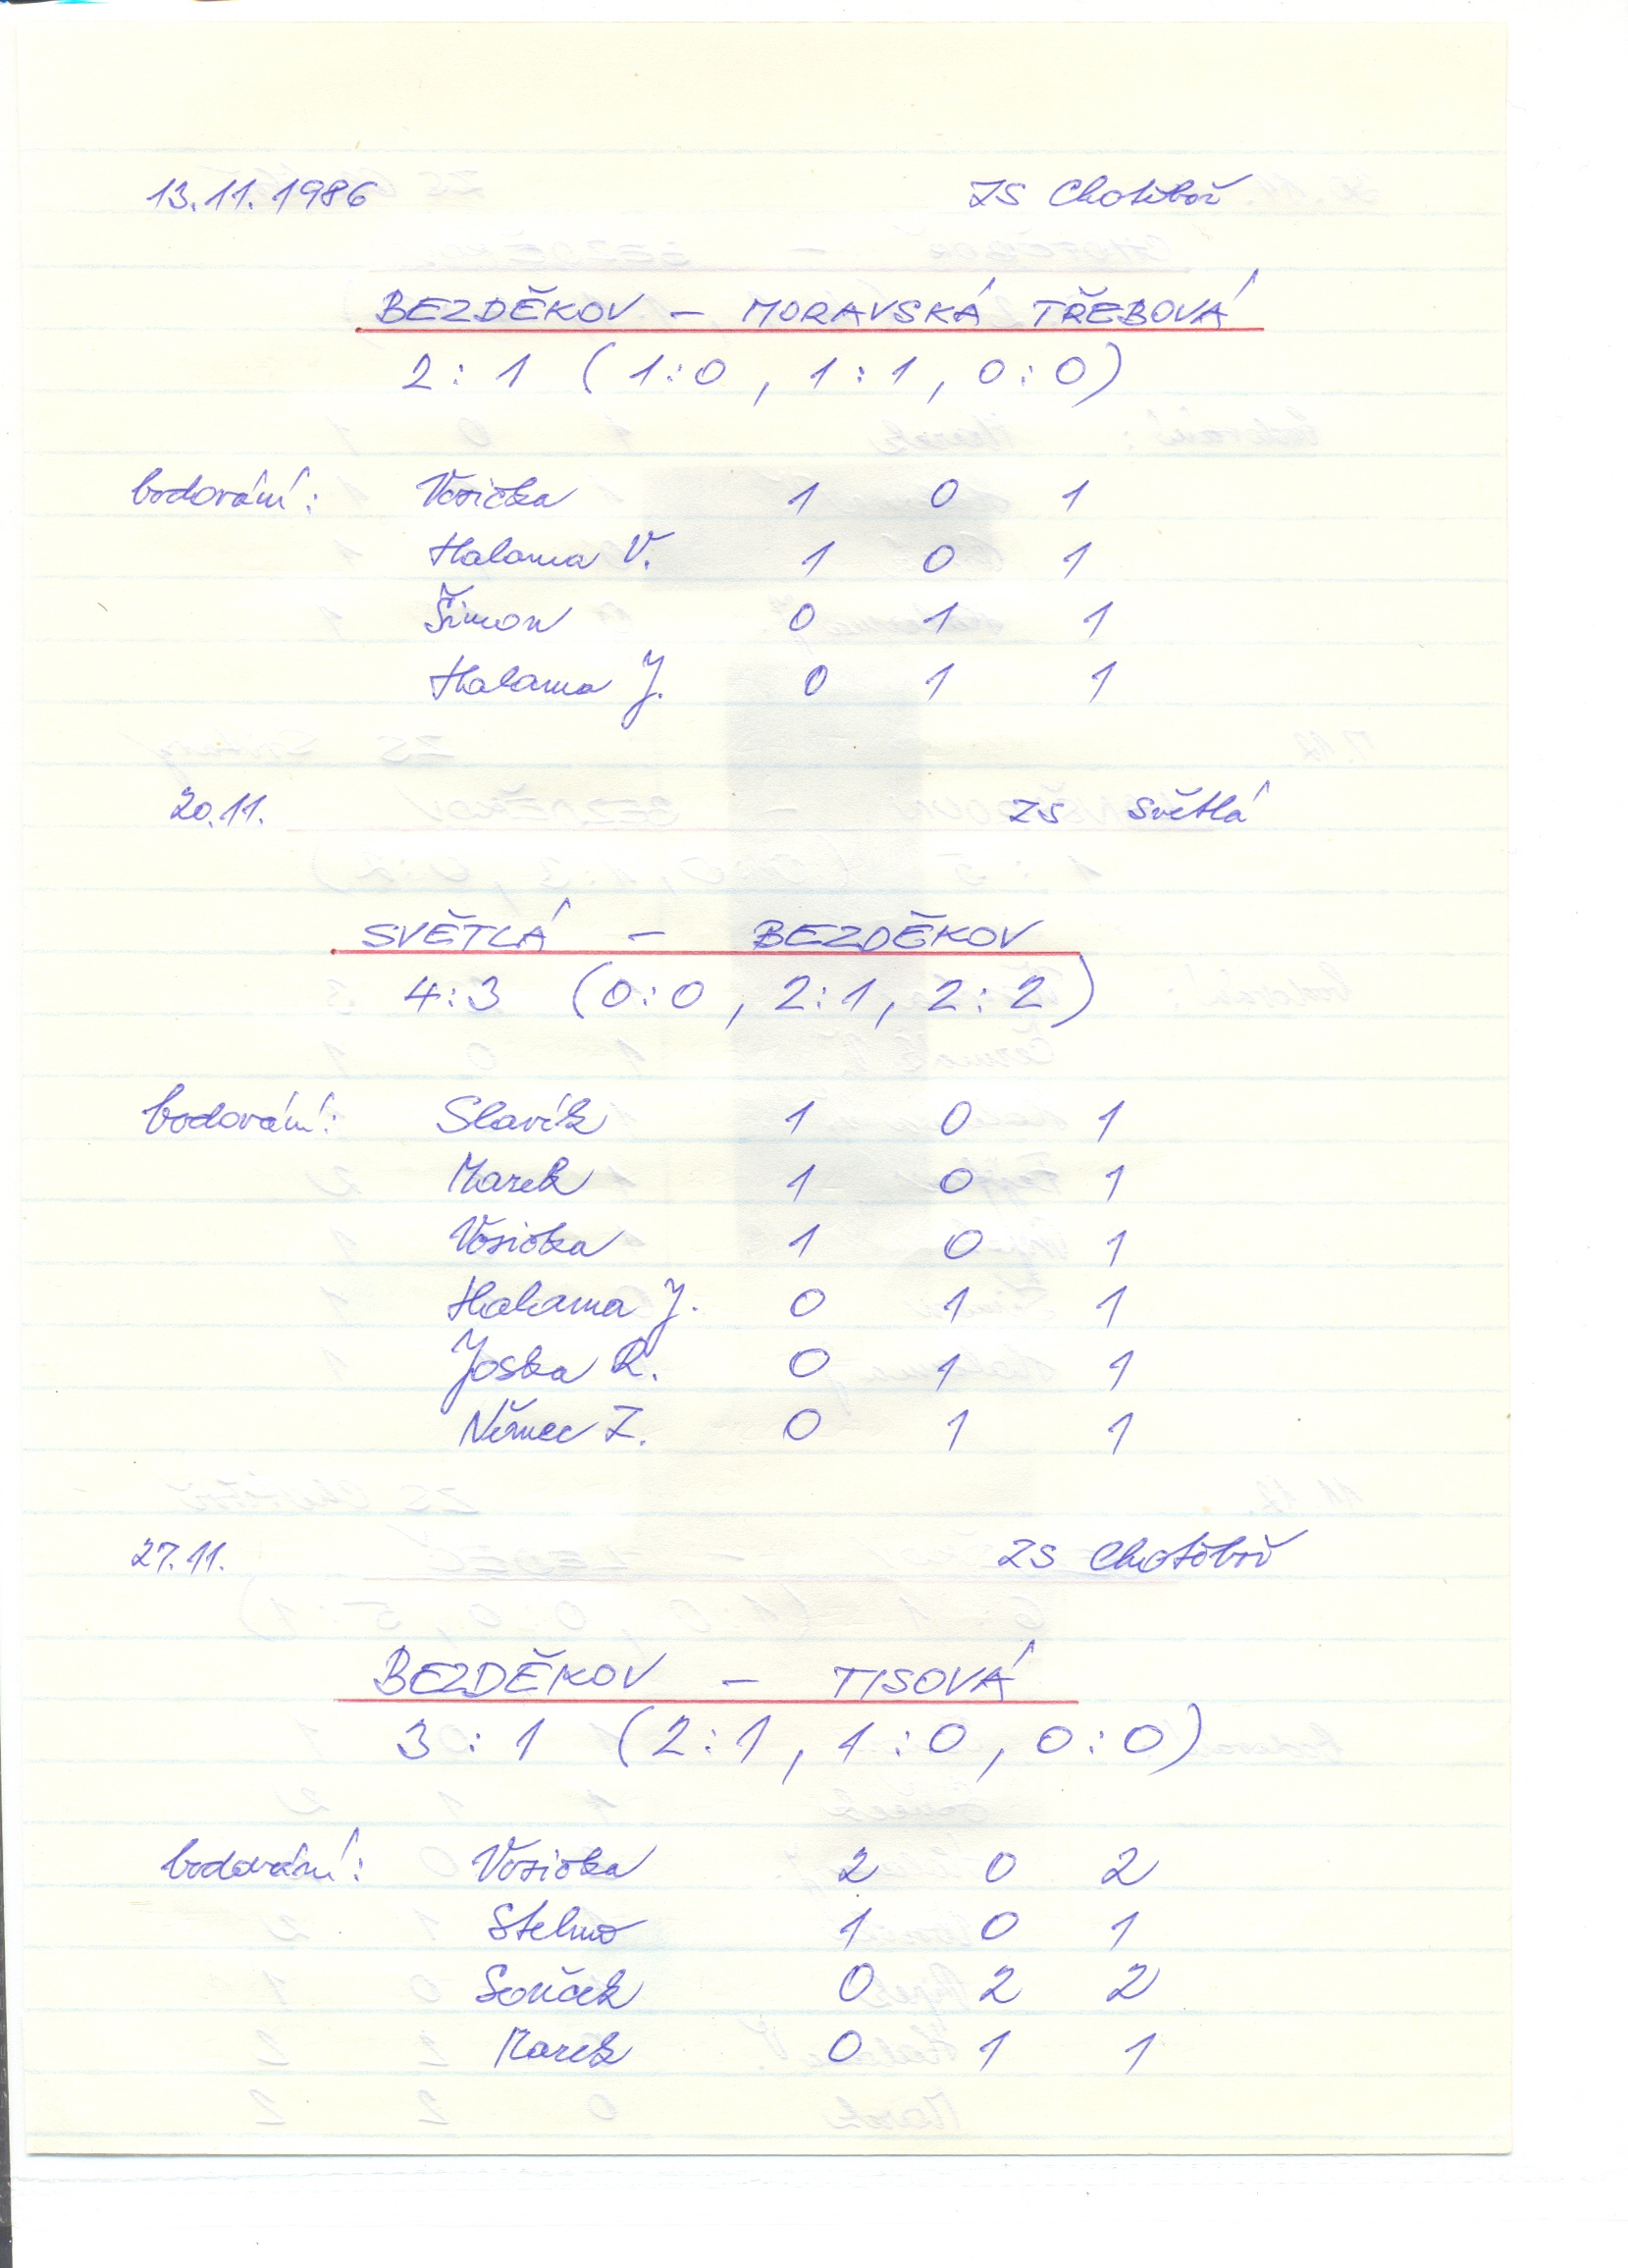 13.11.1986 ZS Chotěboř
BEZDĚKOV – MORAVSKÁ TŘEBOVÁ
2:1 (1:0, 1:1, 0:0)
bodování: Vosička 1 0 1
Halama V. 1 0 1
Šimon 0 1 1
Halama J. 0 1 1
20.11. ZS Světlá
SVĚTLÁ – BEZDĚKOV
4:3 (0:0, 2:1, 2:2)
bodování: Slavík 1 0 1
Marek 1 0 1
Vosička 1 0 1
Halama J. 0 1 1
Joska R. 0 1 1
Němec Z. 0 1 1
27.11. ZS Chotěboř
BEZDĚKOV – TISOVÁ
3:1 (2:1, 1:0, 0:0)
bodování: Vosička 2 0 2
Stehno 1 0 1
Souček 0 2 2
Marek 0 1 1